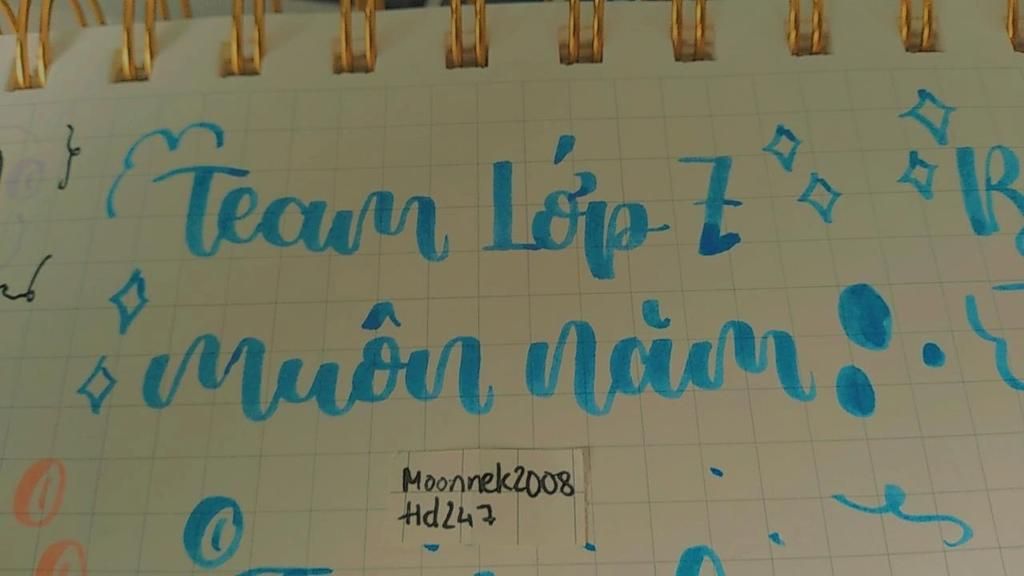 Team Lớp 7
muôn năm
Moonnek2008
Hd247